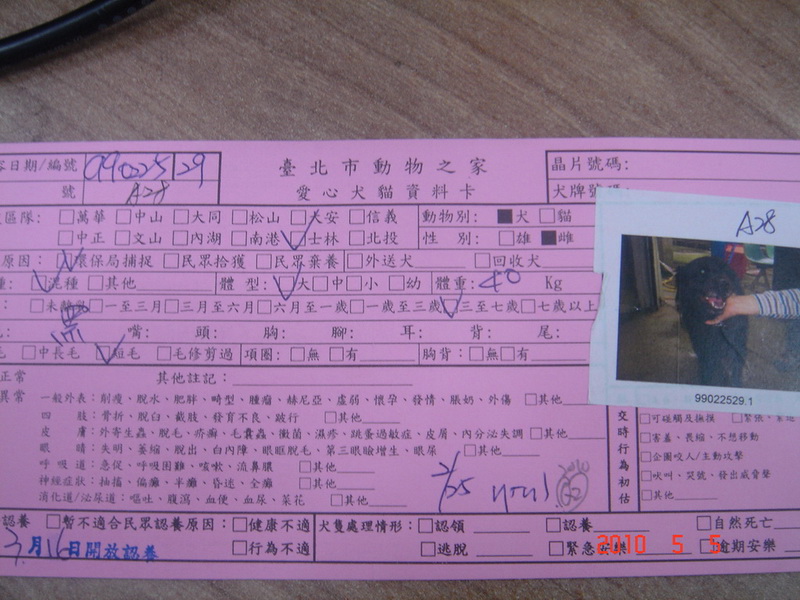 容日期/編號 990225 29 臺北市動物之家 晶片號碼:
號 A28 愛心犬貓資料卡 犬牌號碼:
區隊: □萬華 □中山 □大同 □松山 □大安 □信義 動物別: ■犬 □貓
□中正 □文山 □內湖 □南港 □士林 □北投 性 別: □雄 ■雌
A28
原因: □環保局捕捉 □民眾拾獲 □民眾棄養 □外送犬 □回收犬
□混種 □其他 體 型: □大 □中 □小 □幼 體重: 40 Kg
□一至三月 □三月至六月 □六月至一歲 □一至三歲 □三至七歲 □七歲以上
黑 嘴: 頭: 胸: 腳: 耳: 背: 尾:
□中長毛 □短毛 □毛修剪過 項圈: □無 □有 胸背: □無 □有
99022529.1
正常 其他註記:
異常 一般外表: 削瘦、脫水、肥胖、畸型、腫瘤、赫尼亞、虛弱、懷孕、發情、脹奶、外傷 □其他
四 肢: 骨折、脫臼、截肢、發育不良、跛行 □其他
皮 膚: 外寄生蟲、脫毛、疥癬、毛囊蟲、黴菌、濕疹、跳蚤過敏症、皮屑、內分泌失調 □其他
眼 睛: 失明、萎縮、脫出、白內障、眼眶脫毛、第三眼瞼增生、眼屎 □其他
呼 吸 道: 急促、呼吸困難、咳嗽、流鼻膿 □其他
神經症狀: 抽搐、偏癱、半癱、昏迷、全癱 □其他
消化道/泌尿道: 嘔吐、腹瀉、血便、血尿、菜花 □其他
2/25
交時行為初估
□可碰觸及撫摸
□害羞、畏縮、不想移動
□企圖咬人/主動攻擊
□吠叫、哭號、發出威脅聲
□其他
認養 □暫不適合民眾認養原因: □健康不適 犬隻處理情形: □認領 □認養 □自然死亡
3月16日開放認養 □行為不適 □逃脫 □緊急安樂 □逾期安樂
2010 5 5